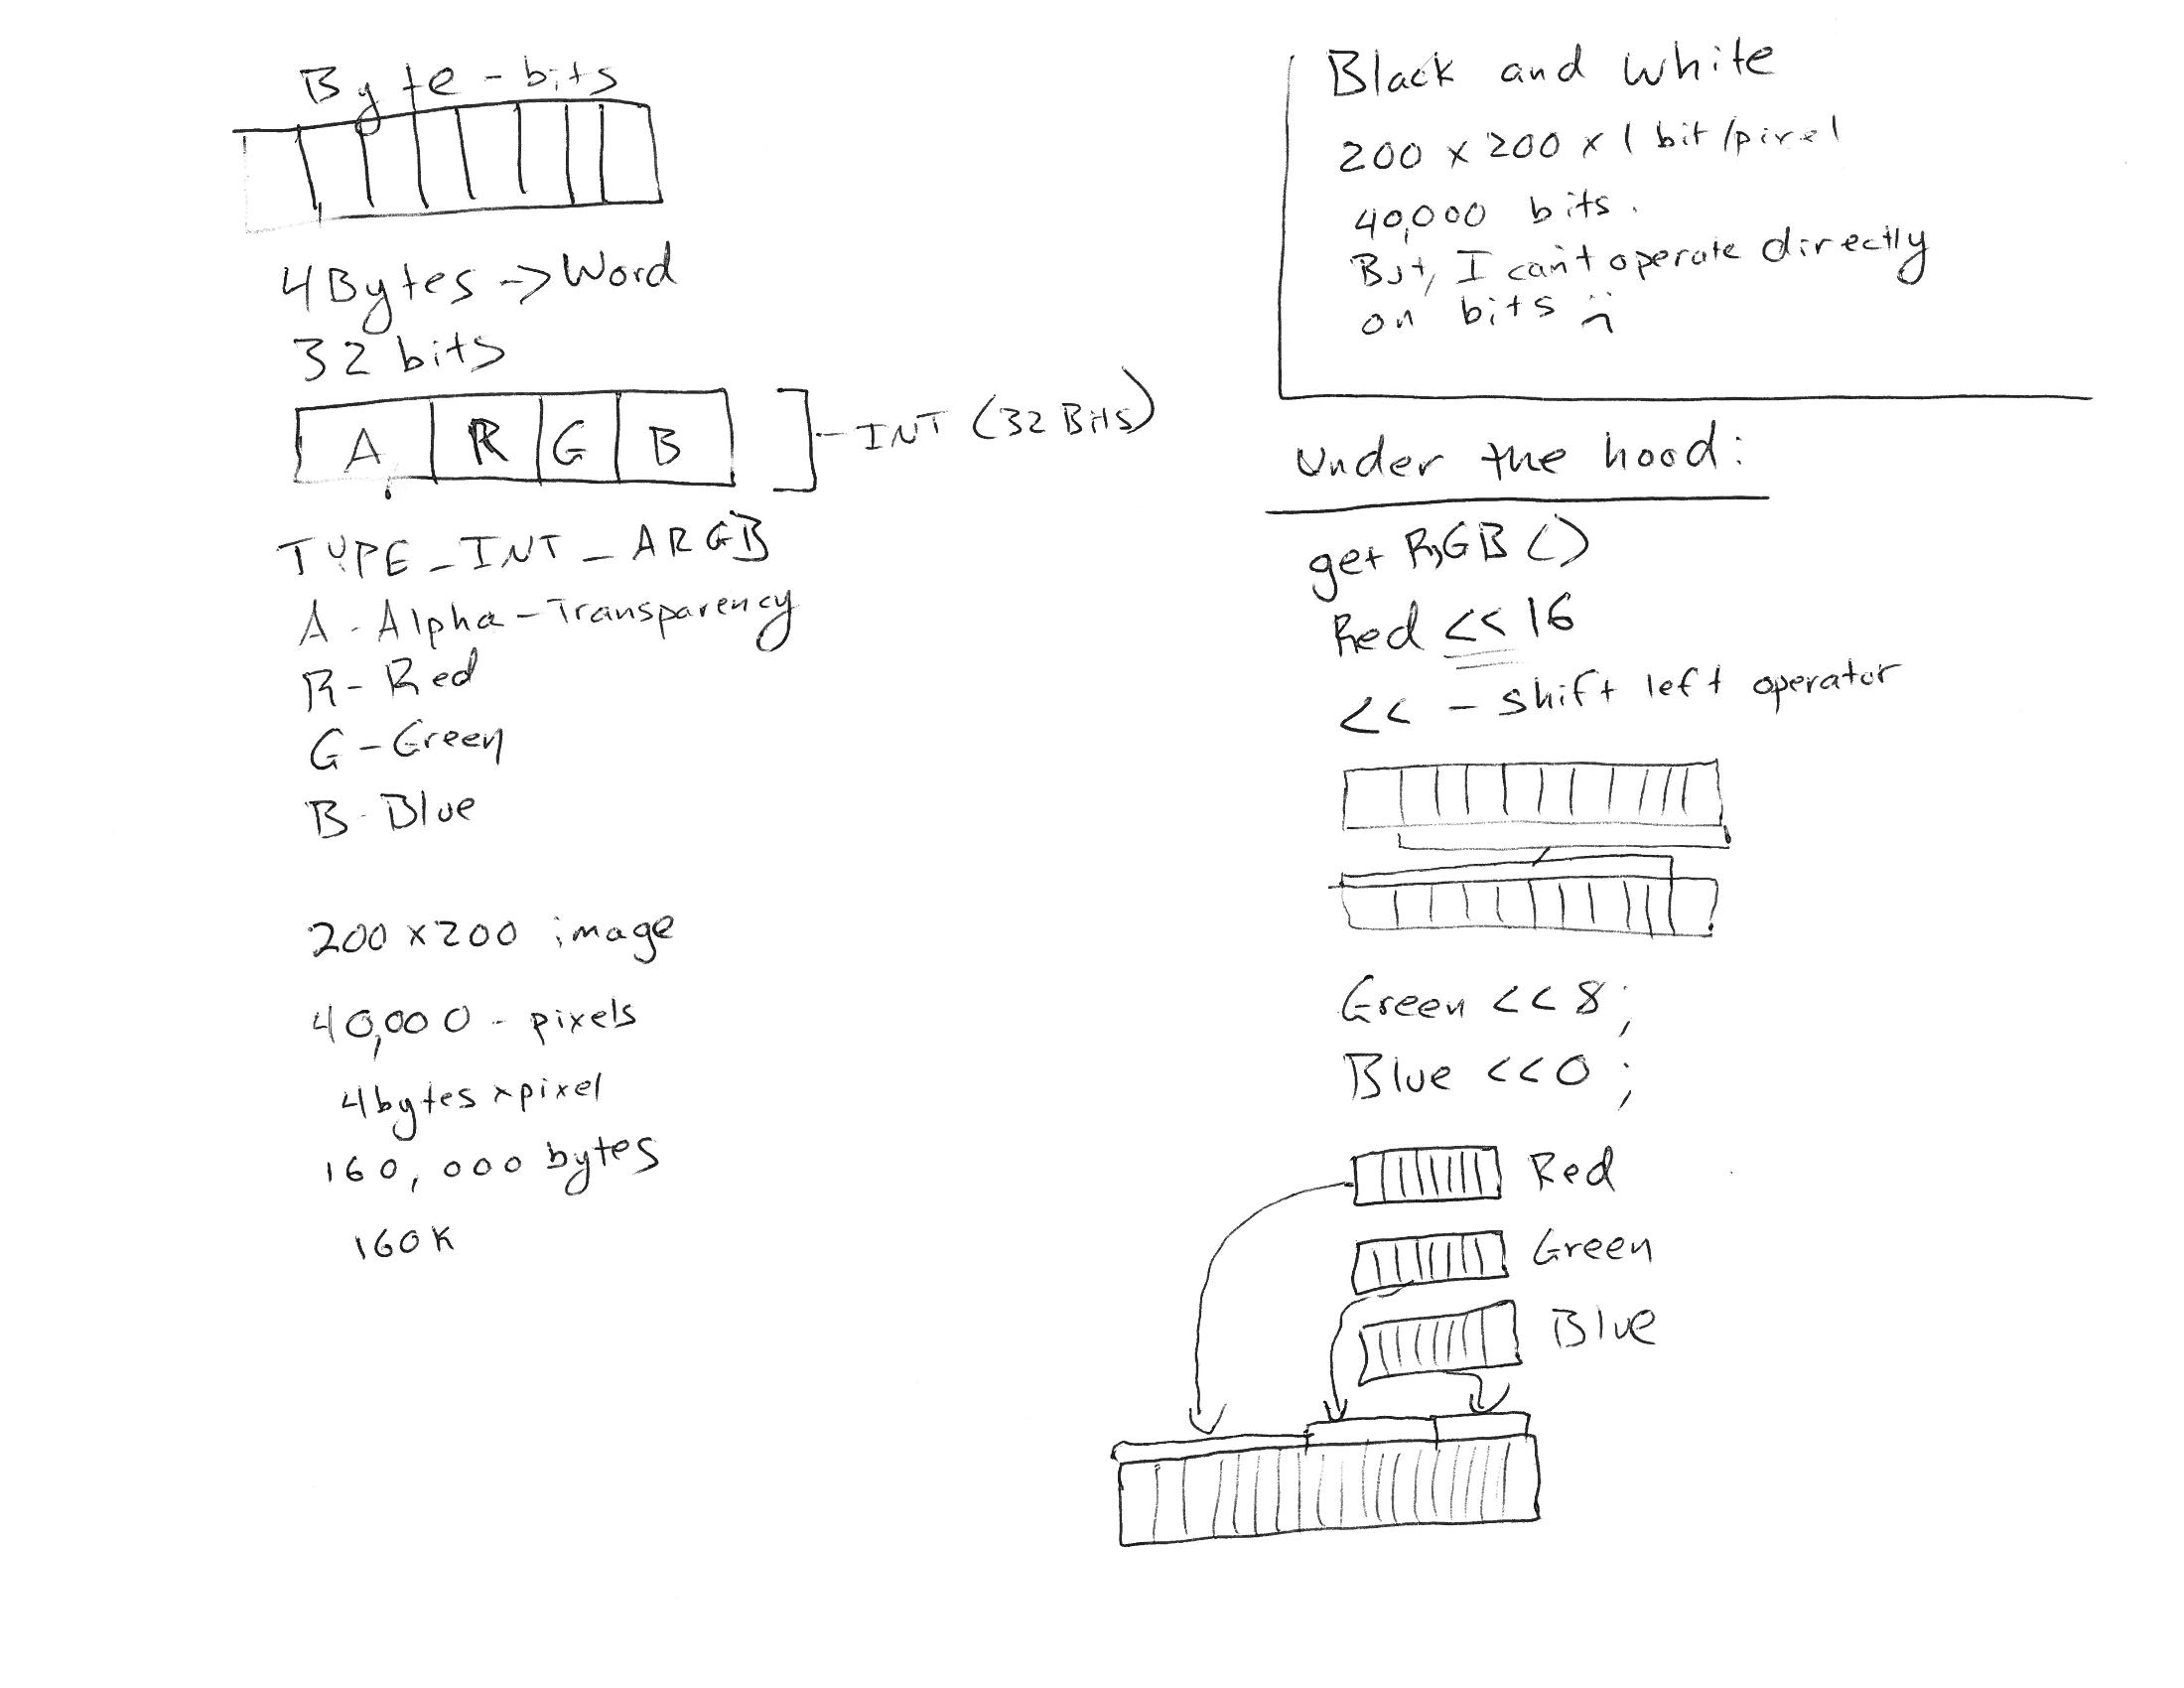 Byte - bits
4Bytes -> Word
32 bits
A R G B
INT (32 Bits)
TYPE_INT_ARGB
A - Alpha - Transparency
R - Red
G - Green
B - Blue
200 x 200 image
40,000 - pixels
4bytes x pixel
160,000 bytes
160K
Black and white
200 x 200 x 1 bit/pixel
40,000 bits.
But, I can't operate directly
on bits :(
Under the hood:
getRGB()
Red << 16
<< - shift left operator
Green << 8;
Blue << 0;
Red
Green
Blue